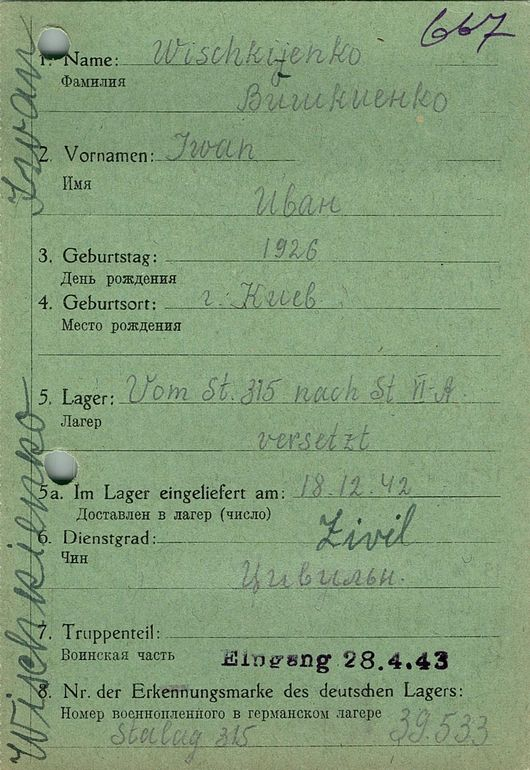 667
1. Name: Wischkijenko
Фамилия
Вишкиенко
2. Vornamen: Iwan
Имя
Иван
3. Geburtstag: 1926
День рождения
4. Geburtsort: г. Киев
Место рождения
5. Lager: Vom St. 315 nach St VI-A
Лагер
versetzt
5a. Im Lager eingeliefert am: 18.12.42
Доставлен в лагер (число)
6. Dienstgrad: Zivil
Чин
Цивильн.
7. Truppenteil:
Воинская часть
Eingang 28.4.43
8. Nr. der Erkennungsmarke des deutschen Lagers:
Номер военнопленного в германском лагере
Stalag 315 39.533
Wischkienko Iwan